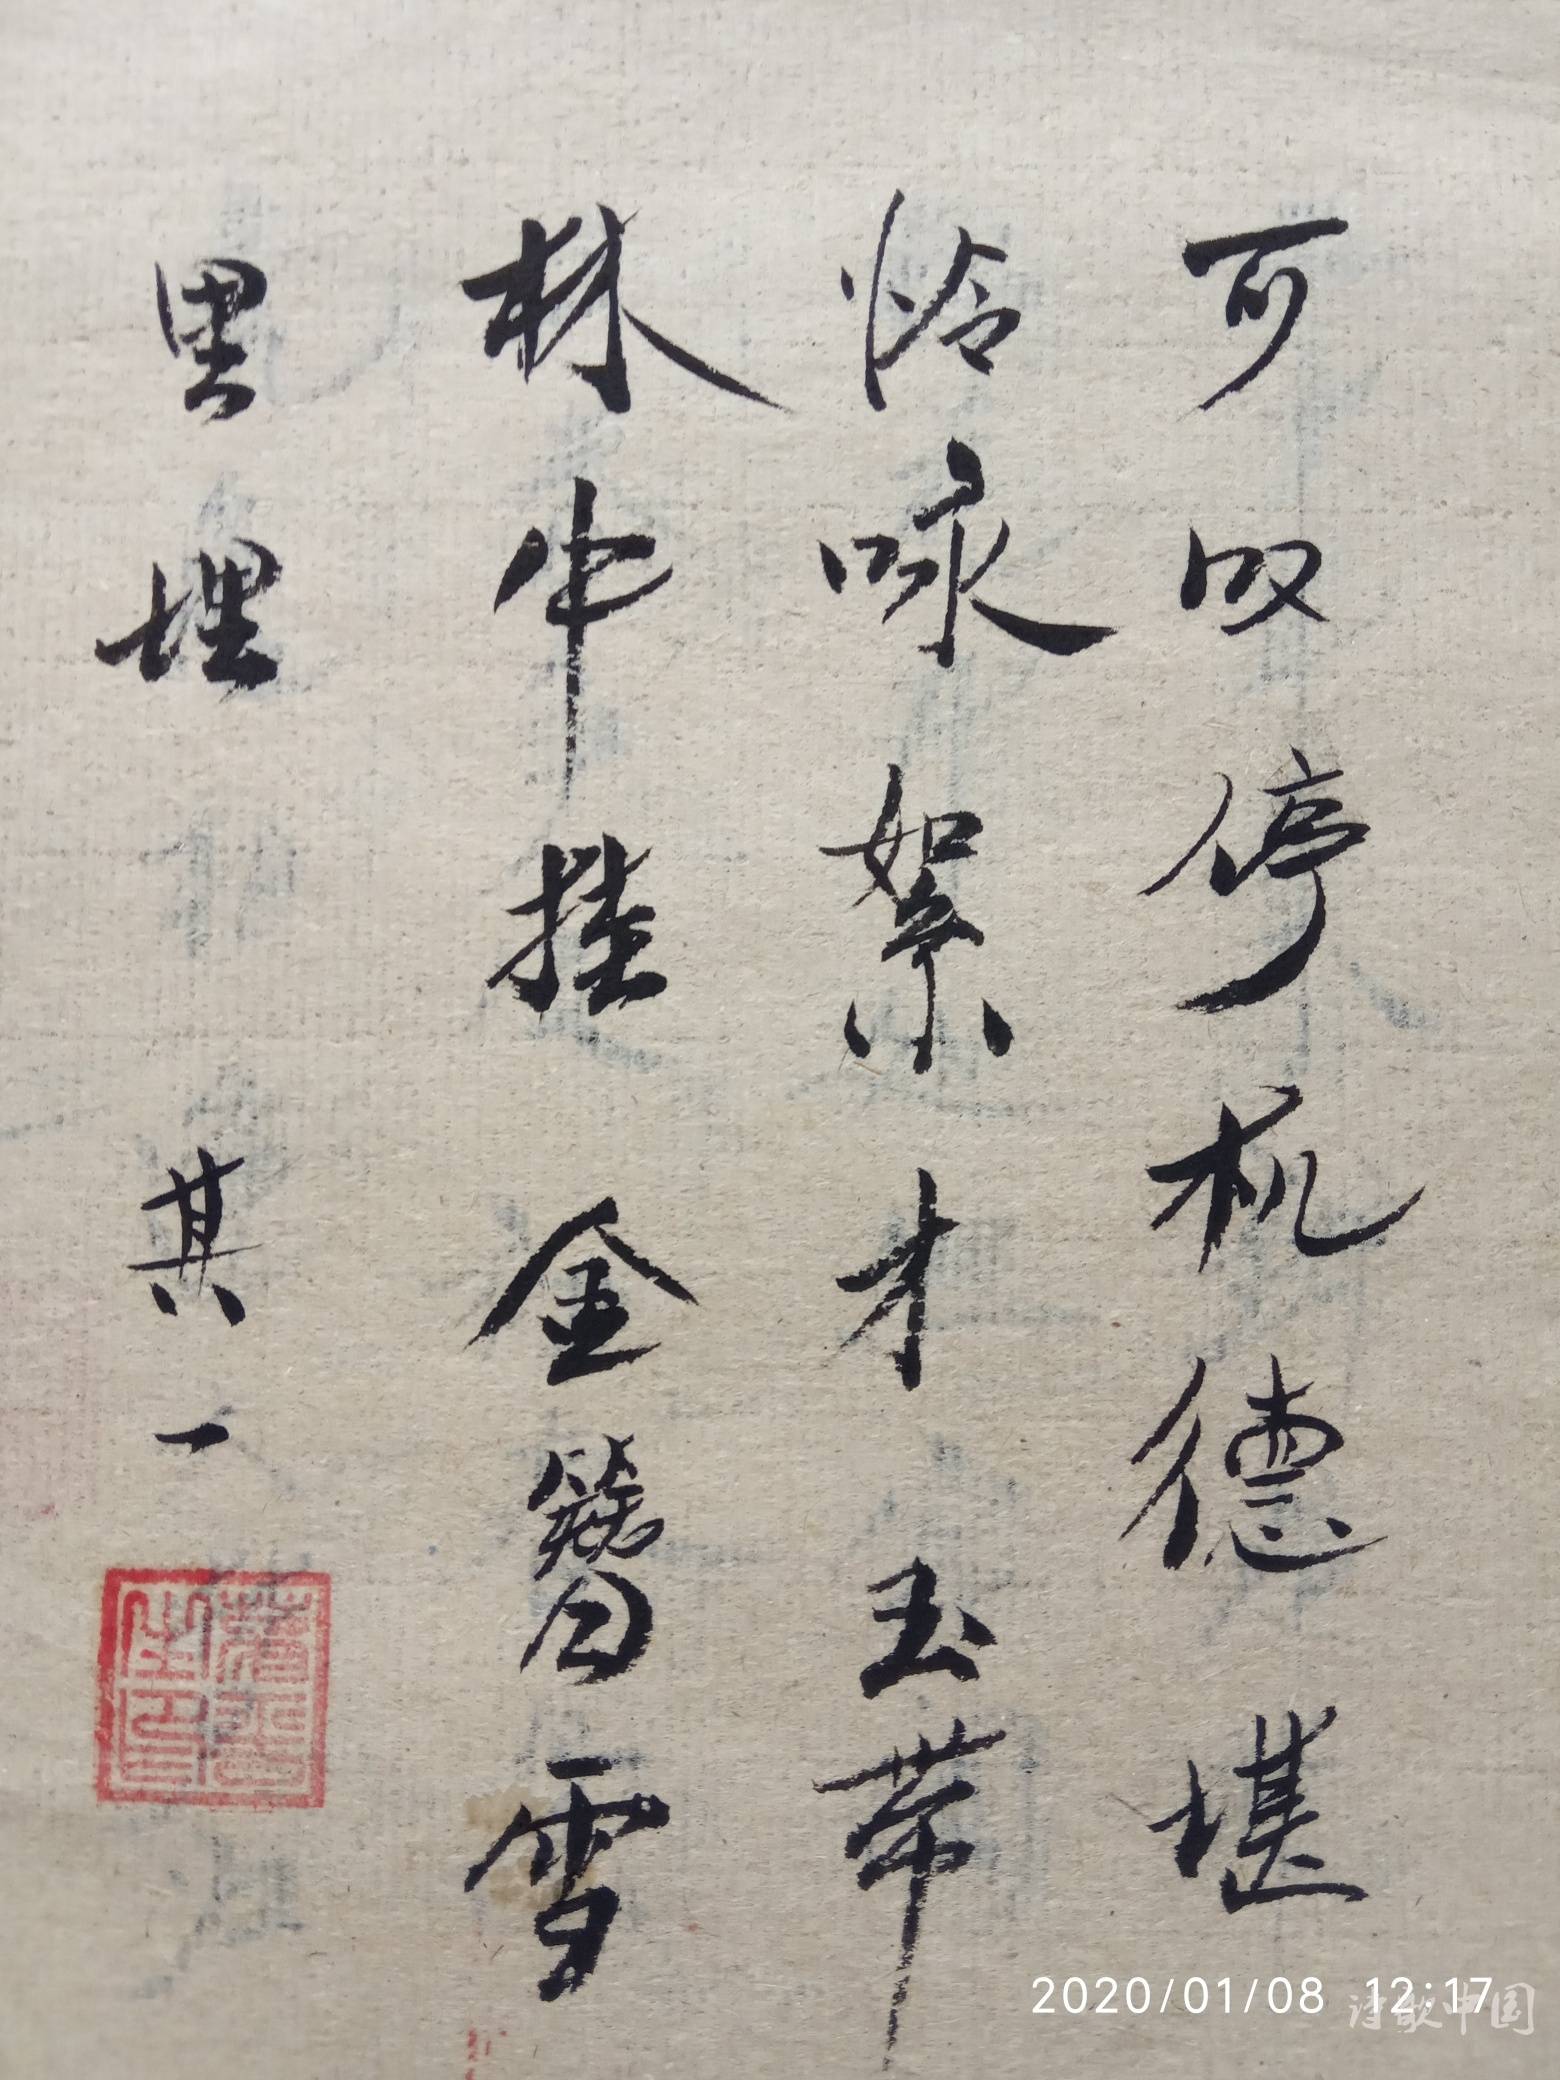 可叹停机德堪
怜咏絮才玉带
林中挂金簪雪
里埋 其一
2020/01/08 12:17
诗歌中国